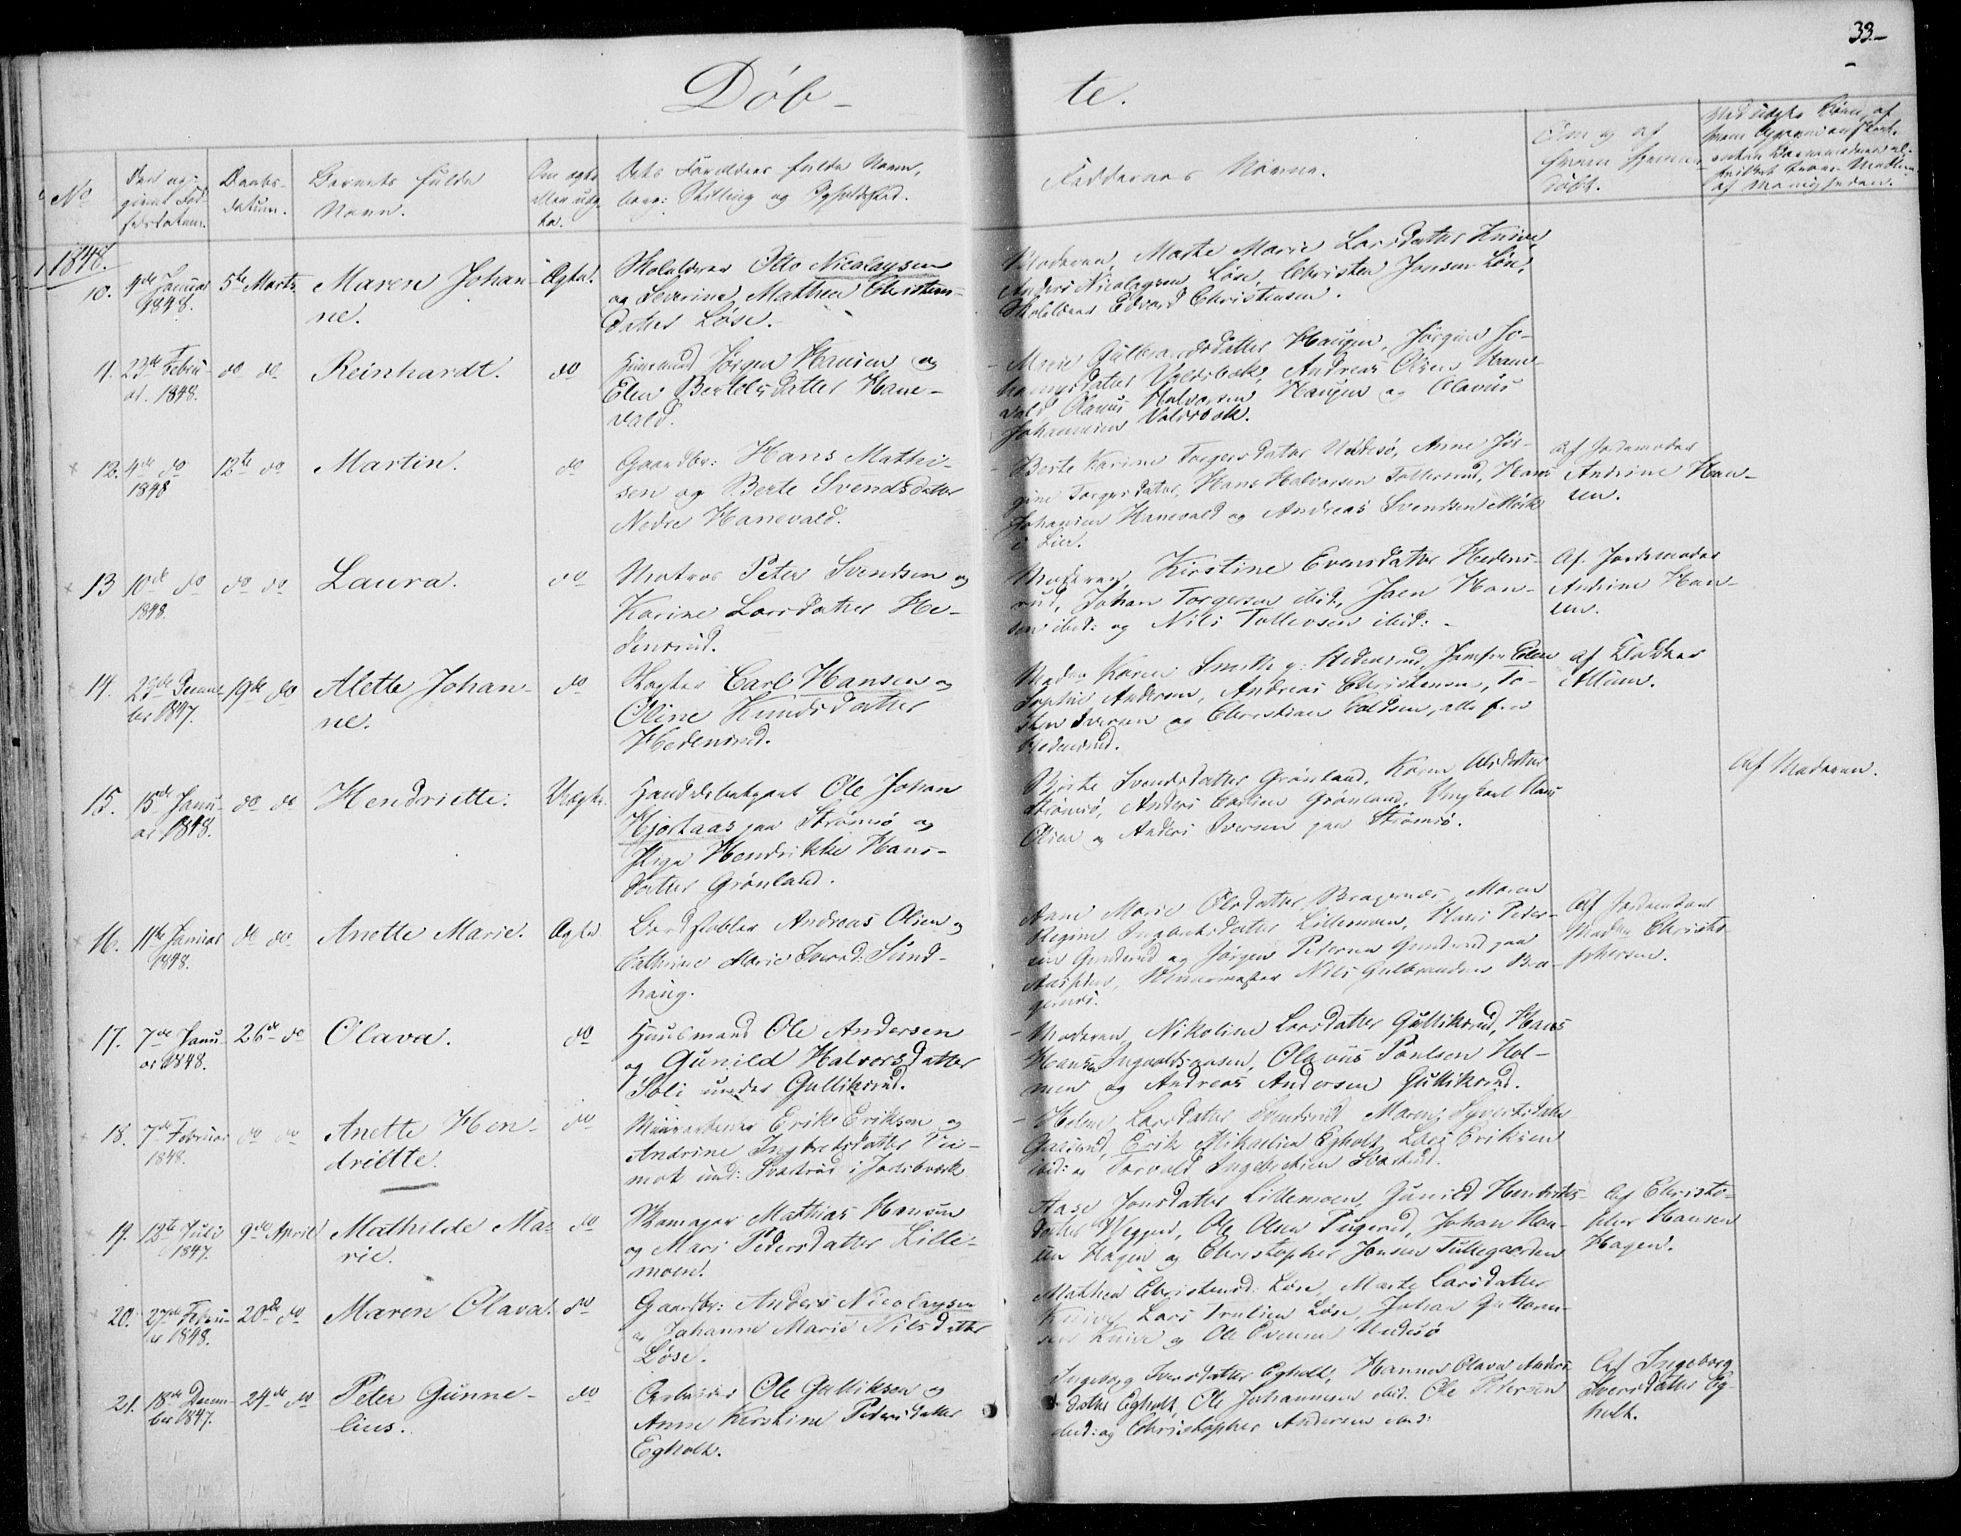 33.
Døb-
te.
No
Daabs-
datum.
Barnets fulde
Navn.
Faddernes Navne.
1848.
10. 4de Januar
1848.
5te Marts
Maren Johan-
ne.
Ægte.
Skolelærer Otto Nicolaysen
og Severine Mathea Christens-
datter Løse.
Moderen, Marte Marie Larsdatter Knive,
Anders Nicolaysen Løse, Christen Jensen Løse,
Skolelærer Edvard Christensen.
11. 23de Febru-
ar. 1848.
do do
Reinhardt.
do
Huusmand Jørgen Hansen og
Elen Bertelsdatter Hane-
vald.
Marie Gulbrandsdatter Haugen, Jørgine Jo-
hannesdatter Valdsbæk, Andreas Olsen Hane-
vald Olaus Halvorsen Haugen og Olavus
Johannesen Valdsbæk.
12. 4de do
1848
12te do
Martin.
do
Gaardbr: Hans Mathi-
sen og Berte Svendsdatter
Nedre Hanevald.
Berte Karine Torgersdatter Undesø, Anne Jør-
gine Torgersdatter, Hans Halvorsen Tollerud, Hans
Johansen Hanevald og Andreas Svendsen Mørk
i Lier.
Af Jordemoder
Andrine Han-
sen.
13 10de do
1848.
do do
Laura.
do
Matros Peter Svendsen og
Karine Larsdatter He-
densrud.
Moderen, Kirstine Evensdatter Hedens-
rud, Johan Torgersen ibid, Jaen Han-
sen ibid: og Nils Tollevsen ibid:
Af Jordemoder
Andrine Han-
sen.
14. 23de Decem-
ber 1847.
19de do
Alette Johan-
ne.
do
Carl Hansen og
Oline Knudsdatter
Hedenrud.
Madam Karen Smith g: Hedensrud, Jomfru Elen
Sophie Andersen, Andreas Christensen, To-
sten Iversen og Christian Coldsen, alle fra
Hedensrud.
Af Klokker
Allum.
15. 15de Janu-
ar 1848.
do do
Hendriette.
Uægte.
Handelsbetjent Ole Johan
Hjortaas paa Strømsø og
Pige Hendrikke Hans-
datter Grønland.
Birte Svendsdatter Grønland, Karen Olsdatter
Strømsø, Anders Carlsen Grønland, Ungkarl Hans
Olsen og Anders Iversen paa Strømsø.
Af Moderen.
16. 11te Januar
1848.
do do
Anette Marie.
Ægte
Bordstabler Andreas Olsen og
Cathrine Marie Iversd: Sund-
haug.
Anne Marie Olsdatter Bragernæs, Maren
Regine Ingbretsdatter Lillemoen, Hans Peder-
sen Gunderud og Jørgen Pedersen Gunderud paa
Nils Gulbrandsen Bra-
gernæs.
Madam Christo-
phersen.
17. 7de Janu-
ar 1848.
26de do
Olava.
do
Huusmand Ole Andersen
og Gunild Halvorsdatter
Soli under Gulliksrud.
Moderen, Nikoline Larsdatter Gulliksrud, Hans
Hansen Ingvaldsaasen, Olavus Poulsen Hol-
men og Andreas Andersen Gulliksrud.
18. 7de Februar
1848.
do do
Anette Hen-
driette.
do
Erik Eriksen og
Andrine Ingbretsdatter
i Jarlsberg
Helene Larsdatter Maren Syvertsdatter
Erik Mikaelsen Egholt, Lars Eriksen
ibid: og Torvald Ingebretsen
19. 13te Juli
1847.
9de April
Mathilde Ma-
rie.
do
Skomager Mathias Hansen
og Mari Pedersdatter Lille-
moen.
Aase Jensdatter Lillemoen, Gunild Hendriks-
datter Ole Olsen Pugerud, Johan Han-
sen Hagen og Christopher Jensen Tutlegaarden
Af Christo-
pher Hansen
Hagen.
20. 27de Febru-
ar 1848.
20de do
Maren Olava.
do
Gaardbr: Anders Nicolaysen
og Johanne Marie Nilsdatter
Løse.
Mathea Christensd: Løse, Marte Larsdatter
Knive, Lars Trulsen Løse, Johan Guttorm-
sen Knive og Ole Evensen Undesø
21. 18de Decem-
ber 1847.
24de do
Peter Gunne-
lius.
do
Arbeider Ole Gulliksen og
Anne Kirstine Pedersdatter
Egholt.
Ingeborg Iversdatter Egholt, Hanna Olava Anders-
datter Egholt, Ole Johannesen ibid. Ole Pedersen
ibid: og Christopher Andersen ibid:
Af Ingeborg
Iversdatter Eg-
holt.